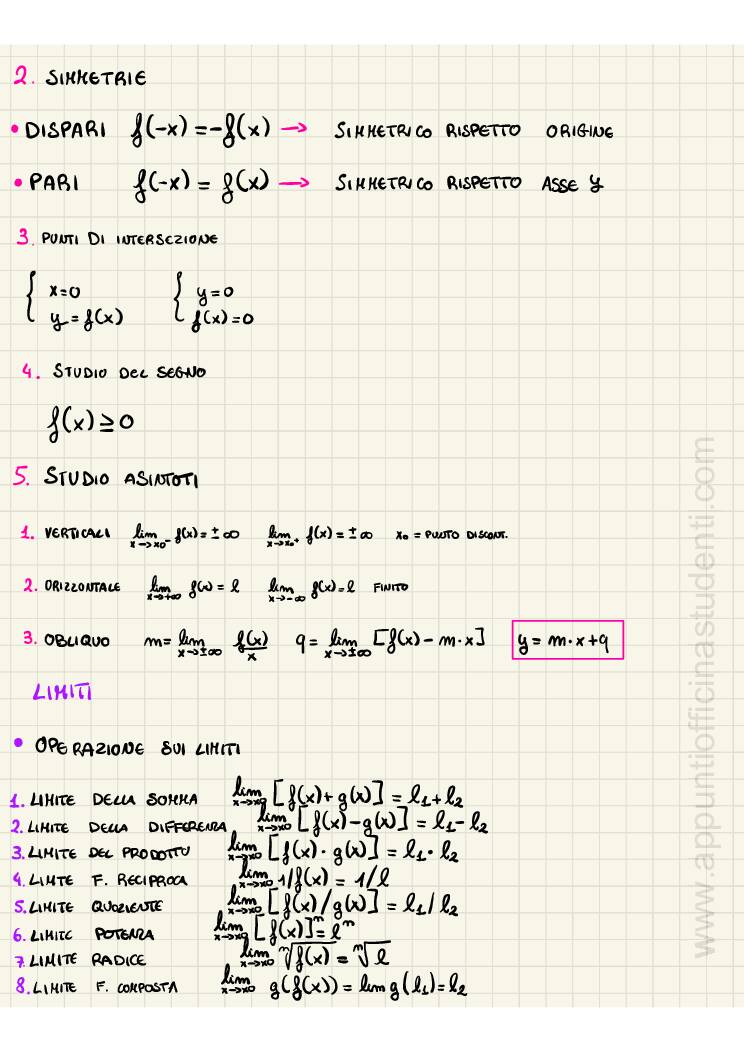 2. SIMMETRIE
• DISPARI f(-x) = -f(x) → SIMMETRICO RISPETTO ORIGINE
• PARI f(-x) = f(x) → SIMMETRICO RISPETTO ASSE y
3. PUNTI DI INTERSEZIONE
{ x=0 { y=0
y=f(x) f(x)=0
4. STUDIO DEL SEGNO
f(x) ≥ 0
5. STUDIO ASINTOTI
1. VERTICALI lim x→x0⁻ f(x) = ±∞ lim x→x0⁺ f(x) = ±∞ x0 = PUNTO DISCONT.
2. ORIZZONTALE lim x→+∞ f(x) = l lim x→-∞ f(x) = l FINITO
3. OBLIQUO m = lim x→±∞ f(x)/x q = lim x→±∞ [f(x) - m·x] y = m·x+q
LIMITI
• OPERAZIONE SUI LIMITI
1. LIMITE DELLA SOMMA lim x→x0 [f(x)+g(x)] = l1+l2
2. LIMITE DELLA DIFFERENZA lim x→x0 [f(x)-g(x)] = l1-l2
3. LIMITE DEL PRODOTTO lim x→x0 [f(x)·g(x)] = l1·l2
4. LIMTE F. RECIPROCA lim x→x0 1/f(x) = 1/l
5. LIMITE QUOZIENTE lim x→x0 [f(x)/g(x)] = l1/l2
6. LIMITE POTENZA lim x→x0 [f(x)]ⁿ = lⁿ
7. LIMITE RADICE lim x→x0 ⁿ√f(x) = ⁿ√l
8. LIMITE F. COMPOSTA lim x→x0 g(f(x)) = lim g(l1) = l2
www.appuntiofficinastudenti.com